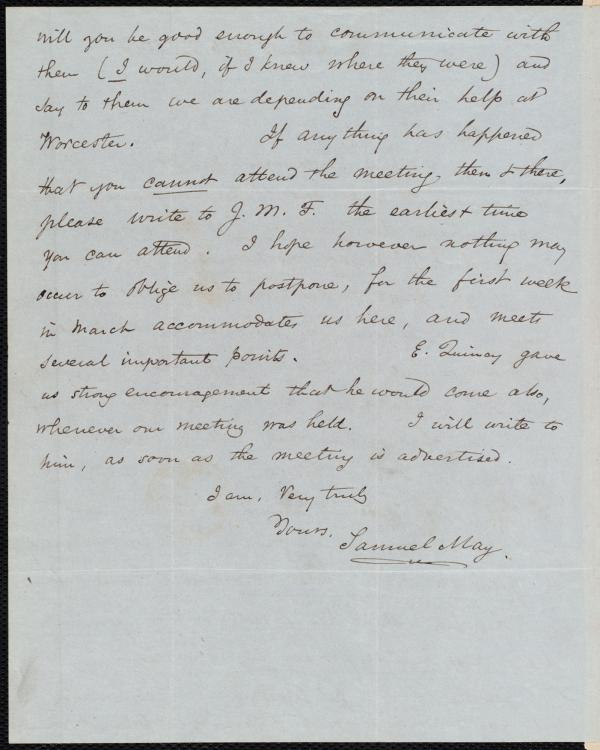 will you be good enough to communicate with
them (I would, if I knew where they were) and
say to them we are depending on their help at
Worcester. If anything has happened
that you cannot attend the meeting, then & there,
please write to J. M. F. the earliest time
you can attend. I hope however nothing may
occur to oblige us to postpone, for the first week
in March accommodates us here, and meets
several important points. E. Quincy gave
us strong encouragement that he would come also,
whenever our meeting was held. I will write to
him, as soon as the meeting is advertised.
I am, Very truly
Yours,
Samuel May.